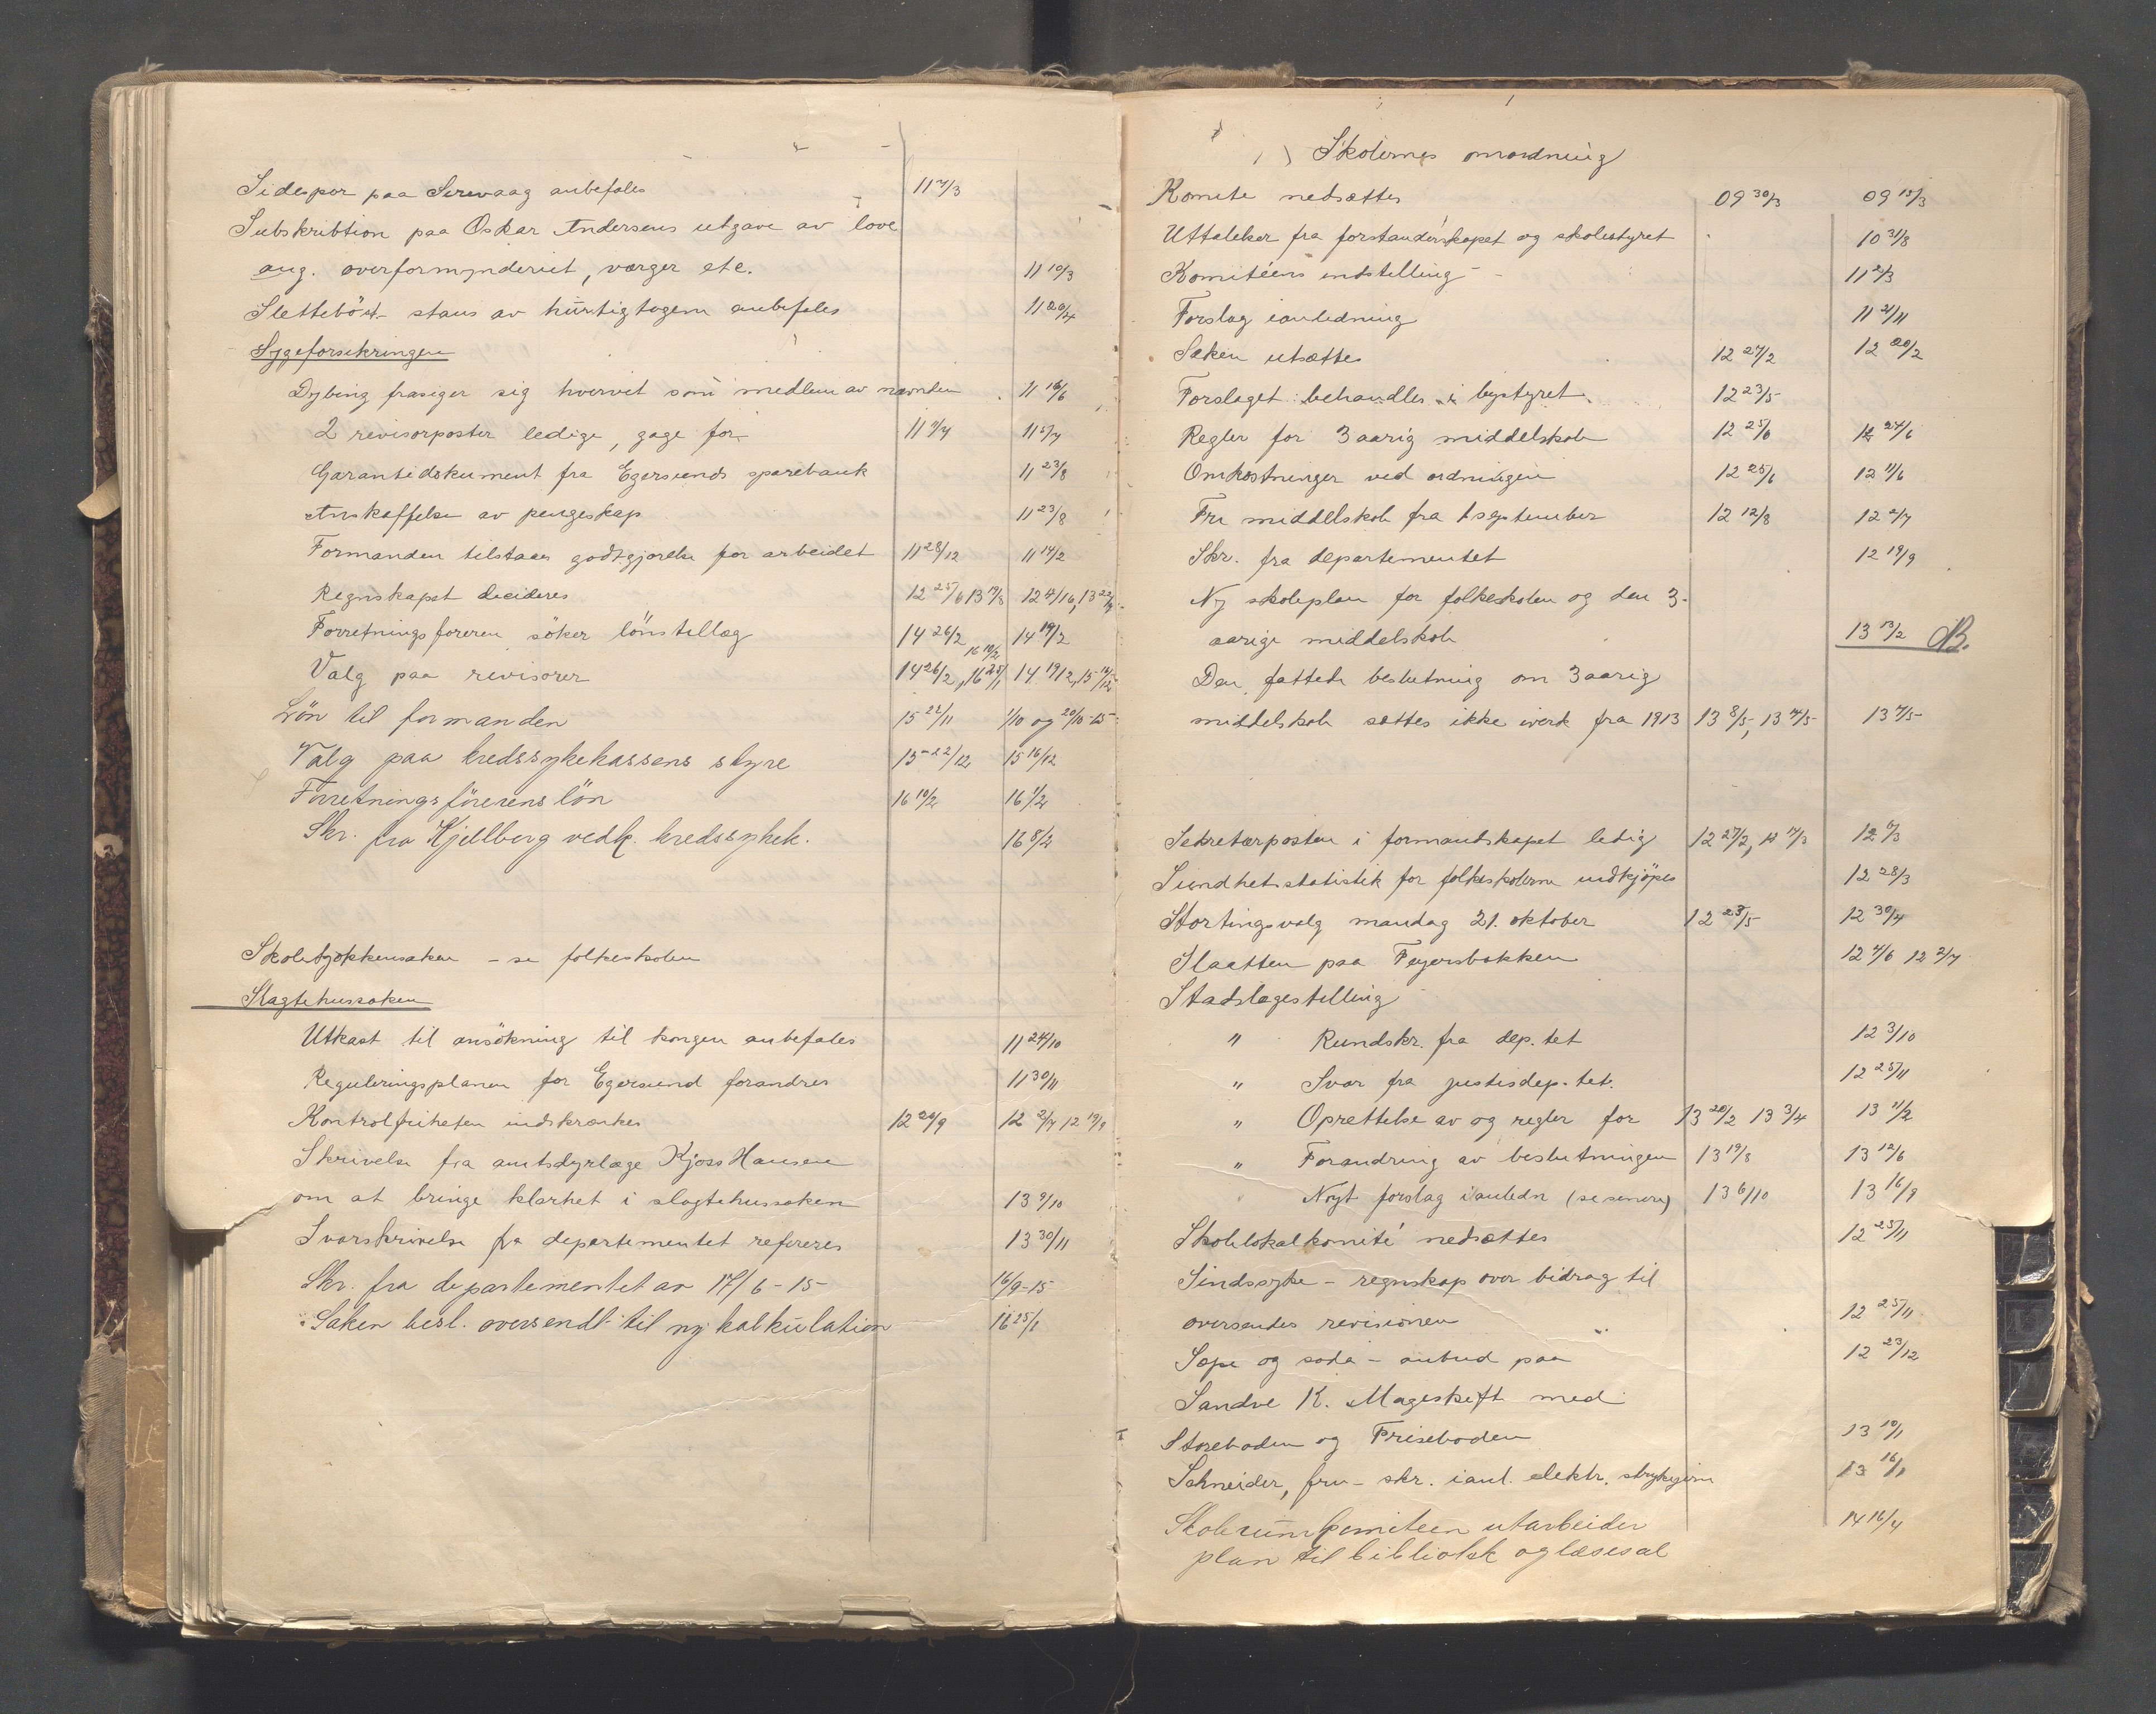 Sidespor paa Sirevaag anbefales 11 7/3
Subskribtion paa Oskar Andersens utgave av love
ang. overformynderiet, værger etc. 11 10/3
Slettebö st. stans av hurtigtogene anbefales 11 20/4
Sygeforsikringen
Dybing frasiger sig hvervet som medlem av nævnden 11 16/6
2 revisorposter ledige, gage for 11 5/7
Garantidokument fra Egersunds sparebank 11 23/8
Anskaffelse av pengeskap 11 23/8
Formanden tilstaaes godtgjørelse for arbeidet 11 28/12 11 14/2
Regnskapet decideres 12 25/6
Forretningsføreren søker lönstillæg 14 26/2 16 10/2 14 19/2
Valg paa revisorer 14 26/2, 16 25/1 14 19/2, 15 16/12
Lön til formanden 15 22/11 1/10 og 20/10-15
Valg paa kredssykekassens styre 15-22/12 15 16/12
Forretningsförerens lön 16 10/2 16 1/2
Skr. fra Kjellberg vedk. kredssykek. 16 8/2
Skolekjøkkensaken - se folkeskolen
Slagtehussaken
Utkast til ansökning til kongen anbefales 11 24/10
Reguleringsplanen for Egersund forandres 11 30/11
Kontrolfriheten indskrænkes 12 20/9 12 2/7 12 19/9
Skrivelse fra amtsdyrlæge Kjoss Hansen
om at bringe klarhet i slagtehussaken 13 9/10
Svarskrivelse fra departementet refereres 13 30/11
Skr. fra departementet av 17/6-15 16/9-15
Saken besl. oversendt til ny kalkulation 16 25/1
Skolernes omordning
Komite nedsættes 09 30/3 09 15/3
Uttalelser fra forstanderskapet og skolestyret 10 31/8
Komitéens indstilling 11 2/3
Forslag ianledning 11 21/11
Saken utsættes 12 27/2 12 20/2
Forslaget behandles i bystyret 12 23/5
Regler for 3 aarig middelskole 12 25/6 12 24/6
Omkostninger ved ordningen 12 25/6 12 11/6
Fri middelskole fra 1 september 12 12/8 12 2/7
Skr. fra departementet 12 19/9
Ny skoleplan for folkeskolen og den 3-
aarige middelskole 13 13/2 B.
Den fattede beslutning om 3 aarig
middelskole sættes ikke iverk fra 1913 13 8/5, 13 7/5
Sekretærposten i formandskapet ledig 12 27/2, 12 6/3
Sundhetsstatistik for folkeskolerne indkjöpes 12 28/3
Stortingsvalg mandag 21. oktober 12 23/5 12 30/4
Slaatten paa Feyersbakken 12 4/6 12 2/7
Stadslægestilling
" Rundskr. fra dep.tet 12 3/10
" Svar fra justisdep.tet. 12 25/11
" Oprettelse av og regler for 13 20/2 13 3/4 13 11/2
" Forandring av beslutningen 13 19/8 13 12/6
Nyt forslag ianledn (se senere) 13 6/10 13 16/9
Skolelokalkomité nedsættes 12 25/11
Sindssyke - regnskap over bidrag til
oversendes revisionen 12 25/11
Sæpe og soda - anbud paa 12 23/12
Sandve K. Mageskift med
Storeboden og Friseboden 13 10/1
Schneider, fru - skr. ianl. elektr. strykejern 13 16/1
Skolerumkomiteen utarbeider 14 16/4
plan til bibliotek og læsesal